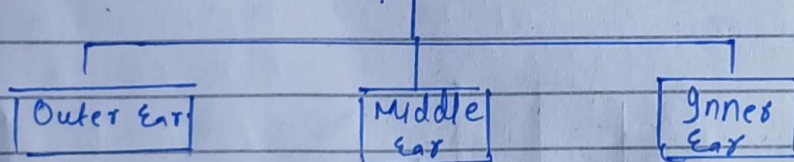 Outer Ear
Middle
Ear
Inner
Ear